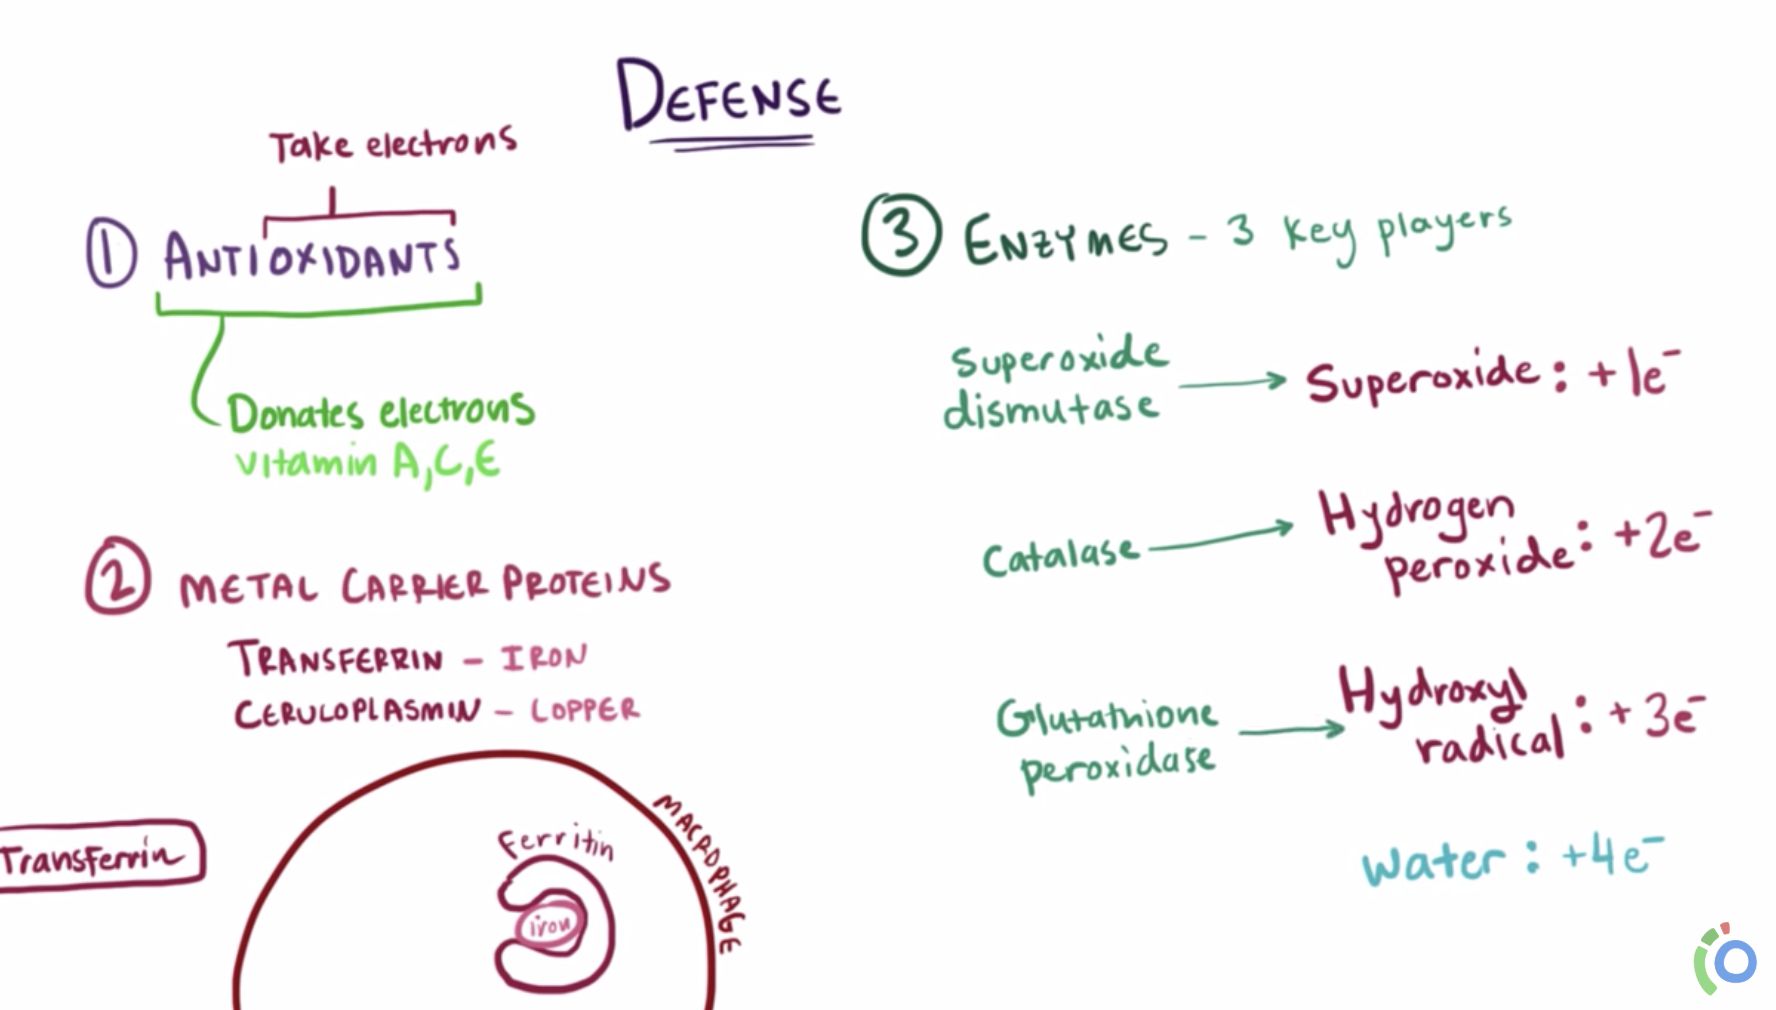 DEFENSE
Take electrons
① ANTIOXIDANTS
Donates electrons
vitamin A,C,E
② METAL CARRIER PROTEINS
TRANSFERRIN - IRON
CERULOPLASMIN - COPPER
Transferrin
Ferritin
iron
MACROPHAGE
③ ENZYMES - 3 key players
Superoxide
dismutase → Superoxide: +1e⁻
Catalase → Hydrogen
peroxide: +2e⁻
Glutathione
peroxidase → Hydroxyl
radical: +3e⁻
Water: +4e⁻